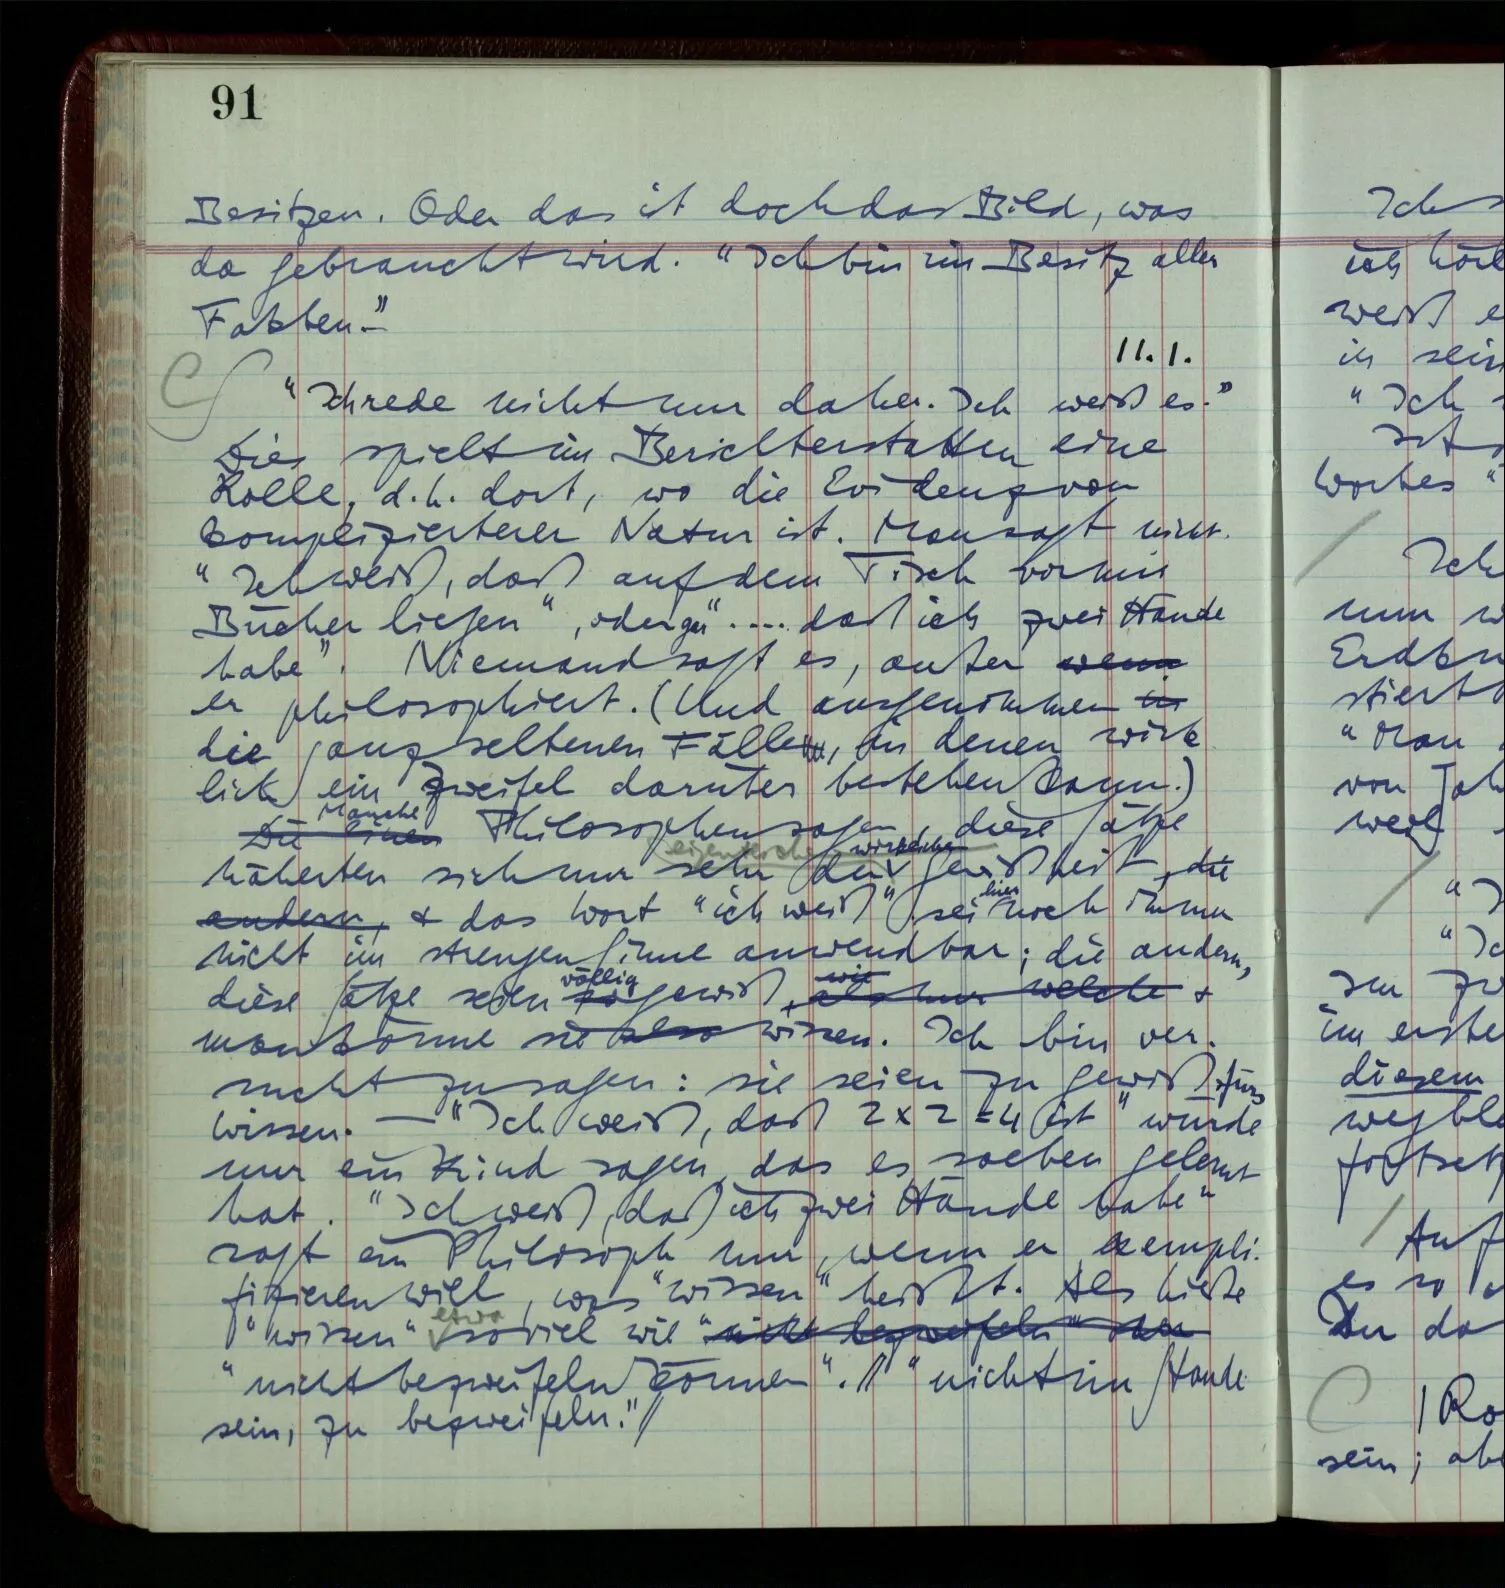 91
Besitzen. Oder das ist doch das Bild, was
da gebraucht wird. "Ich bin im Besitz aller
Fakten."
11.1.
"Ich rede nicht nur daher. Ich weiß es."
Dies spielt im Berichterstatten eine
Rolle, d.h. dort, wo die Evidenz von
komplizierterer Natur ist. Man sagt nicht
"Ich weiß, daß auf dem Tisch vor mir
Bücher liegen", oder gar ".... daß ich zwei Hände
habe". Niemand sagt es, außer wenn
er philosophiert. (Und ausgenommen in
die ganz seltenen Fälle, in denen wirk
lich ein Zweifel darüber bestehen kann.)
Manche
Die einen Philosophen sagen, diese Sätze
eigentlichen wirklichen
näherten sich nur sehr der Gewißheit, die
andern, & das Wort "ich weiß" sei hier noch immer
nicht im strengen Sinne anwendbar; die andern,
völlig wie
diese Sätze seien so gewiß, als nur welche &
man könne sie also wissen. Ich bin ver-
sucht zu sagen: sie seien zu gewiß für's
Wissen. — "Ich weiß, daß 2 x 2 = 4 ist" würde
nur ein Kind sagen, das es soeben gelernt
hat. "Ich weiß, daß ich zwei Hände habe"
sagt ein Philosoph nur, wenn er exempli-
fizieren will, was "wissen" heißt. Als hieße
etwa
"wissen" soviel wie "nicht bezweifeln" oder
"nicht bezweifeln können". // "nicht im Stande
sein, zu bezweifeln." //
Ich
weiß e
in sein
"Ich
Ist
Wortes "
Ich
nun w
"Man
von Jah
weg
"I
"Ic
im erste
diesem
wegble
fortsetz
Auf
es so
Du da
| Ro
sein; abe